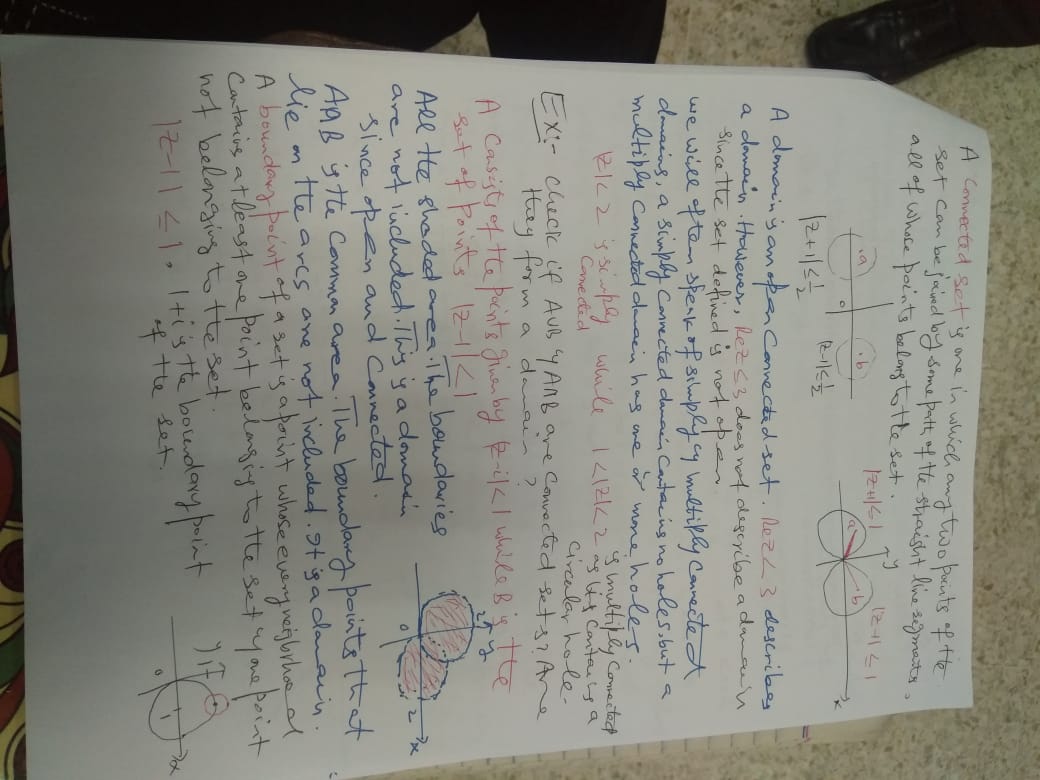 A connected set is one in which any two points of the
set can be joined by some path, of the straight line segments,
all of whose points belong to the set.
a
b
0
|z+1|≤1/2
|z-1|≤1/2
|z+1|≤1
y
|z-1|≤1
a
b
x
A domain is an open connected set. Re z < 3 describes
a domain. However, Re z ≤ 3 does not describe a domain
since the set defined is not open.
we will often speak of simply & multiply connected
domains, a simply connected domain contains no holes, but a
multiply connected domain has one or more holes.
|z|<2 is simply connected while 1<|z|<2 is multiply connected
as it contains a
circular hole.
Ex:- check if A∪B & A∩B are connected sets? Are
they form a domain?
A consists of the points given by |z-i|<1 while B is the
set of points |z-1|<1
2
y
0
2
x
All the shaded area. The boundaries
are not included. This is a domain
since open and connected.
A∩B is the common area. The boundary points that
lie on the arcs are not included. It is a domain.
A boundary point of a set is a point whose every neigbrhood
contains at least one point belongig to the set & one point
not belonging to the set.
|z-1| ≤ 1. 1+i is the boundary point
of the set.
y
0
1
x